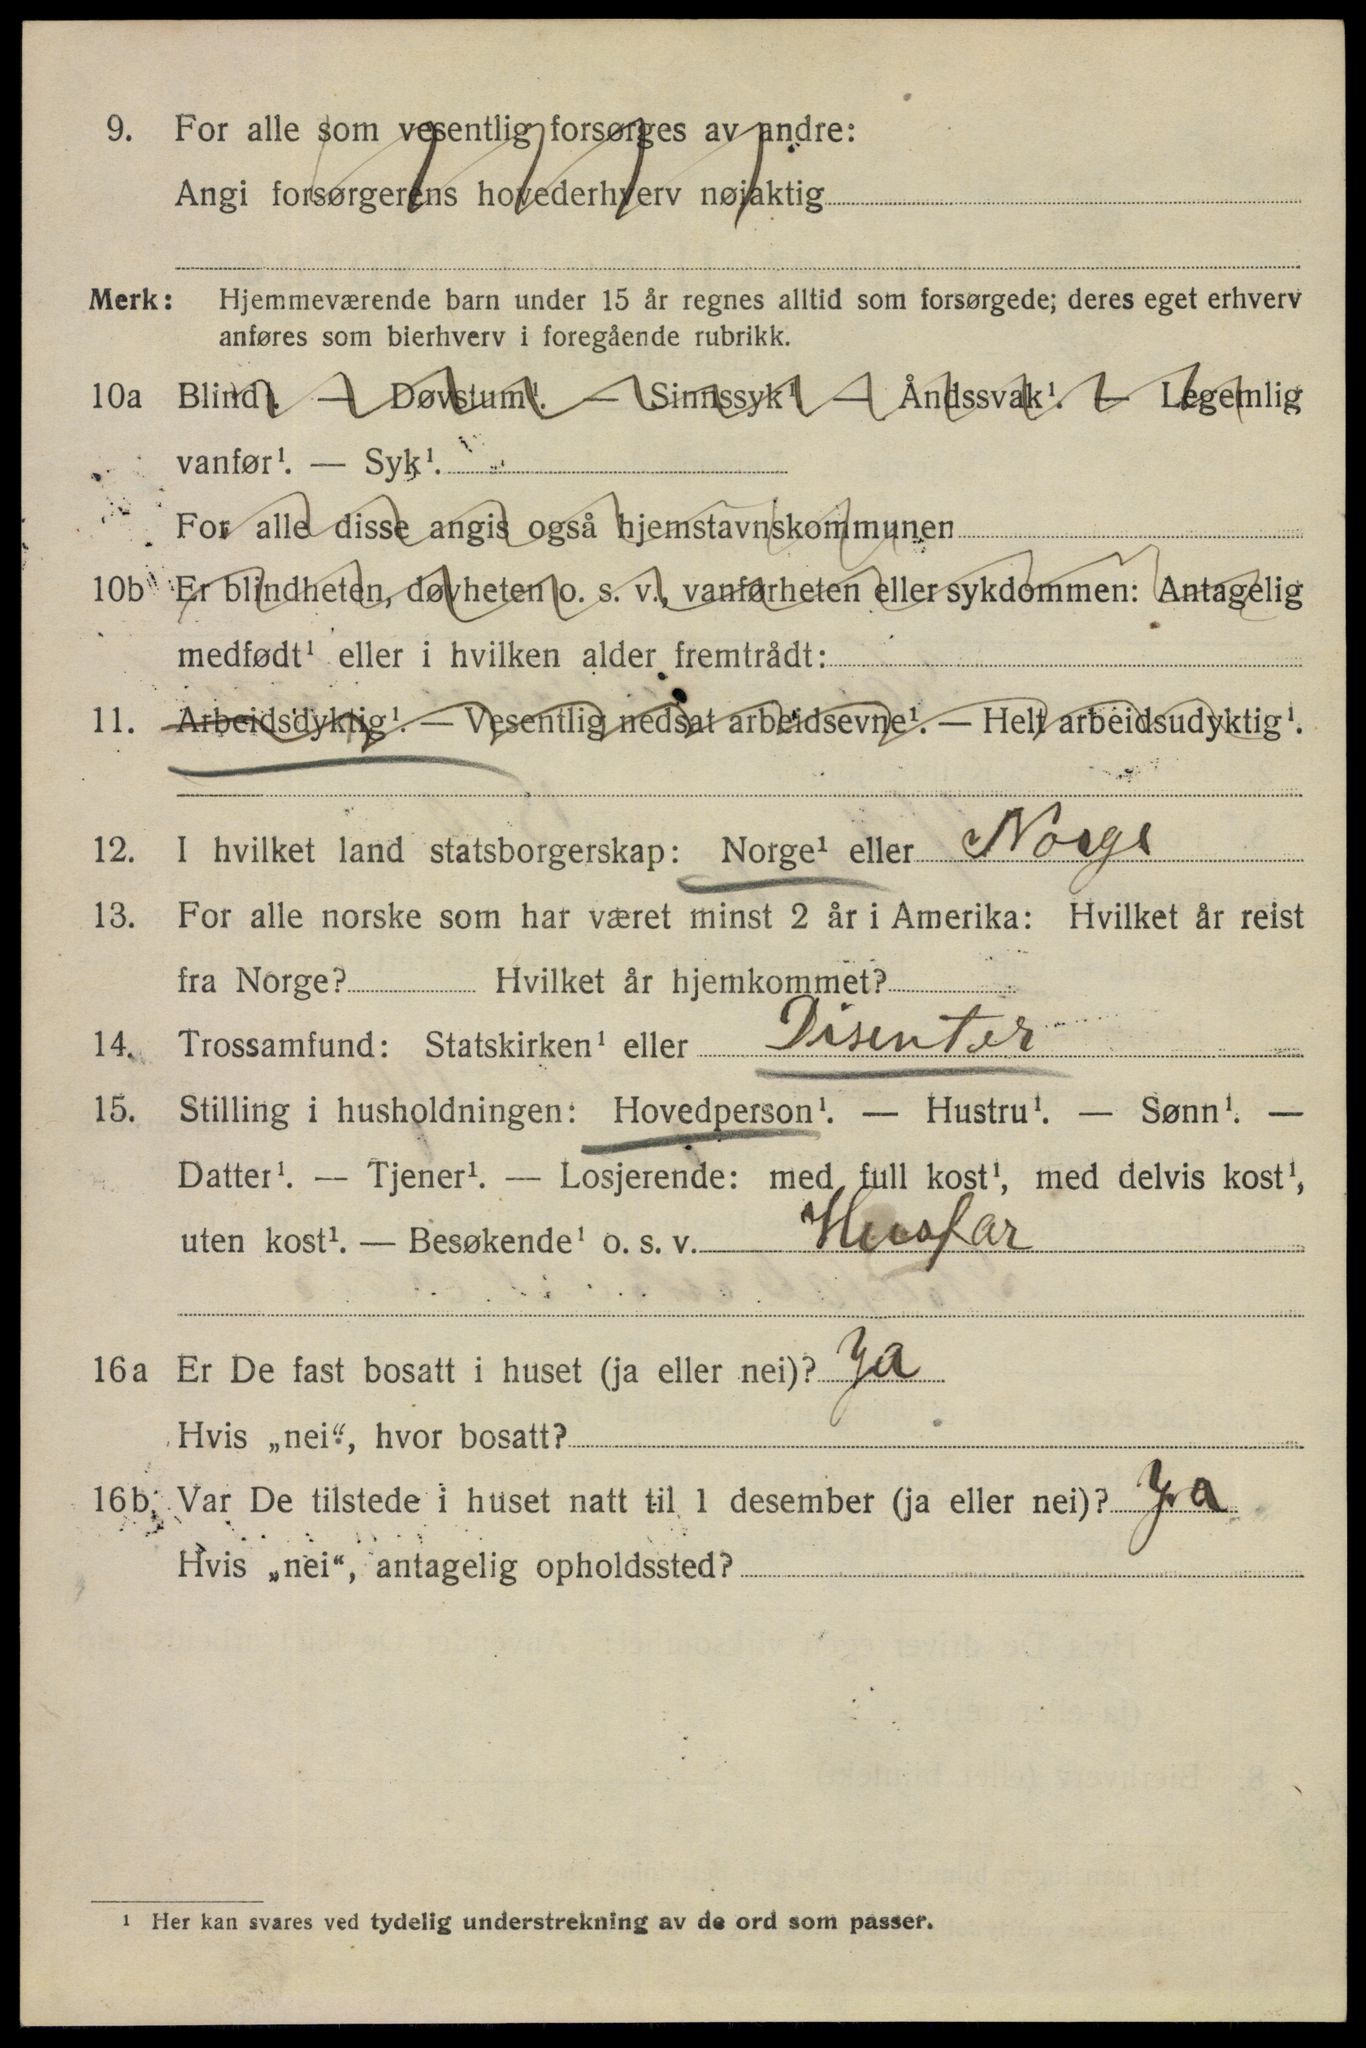 9. For alle som vesentlig forsørges av andre:
Angi forsørgerens hovederhverv nøiaktig
Merk: Hjemmeværende barn under 15 år regnes alltid som forsørgede; deres eget erhverv
anføres som bierhverv i foregående rubrikk.
10a Blind¹. — Døvstum¹. — Sinnssyk¹ — Åndssvak¹. — Legemlig
vanfør¹. — Syk¹.
For alle disse angis også hjemstavnskommunen
10b Er blindheten, døvheten o. s. v., vanførheten eller sykdommen: Antagelig
medfødt¹ eller i hvilken alder fremtrådt:
11. Arbeidsdyktig¹. — Vesentlig nedsat arbeidsevne¹. — Helt arbeidsudyktig¹.
12. I hvilket land statsborgerskap: Norge¹ eller Norge
13. For alle norske som har været minst 2 år i Amerika: Hvilket år reist
fra Norge? Hvilket år hjemkommet?
14. Trossamfund: Statskirken¹ eller Disenter
15. Stilling i husholdningen: Hovedperson¹. — Hustru¹. — Sønn¹. —
Datter¹. — Tjener¹. — Losjerende: med full kost¹, med delvis kost¹,
uten kost¹. — Besøkende¹ o. s. v. Husfar
16a Er De fast bosatt i huset (ja eller nei)? Ja
Hvis „nei“, hvor bosatt?
16b. Var De tilstede i huset natt til 1 desember (ja eller nei)? Ja
Hvis „nei“, antagelig opholdssted?
¹ Her kan svares ved tydelig understrekning av de ord som passer.